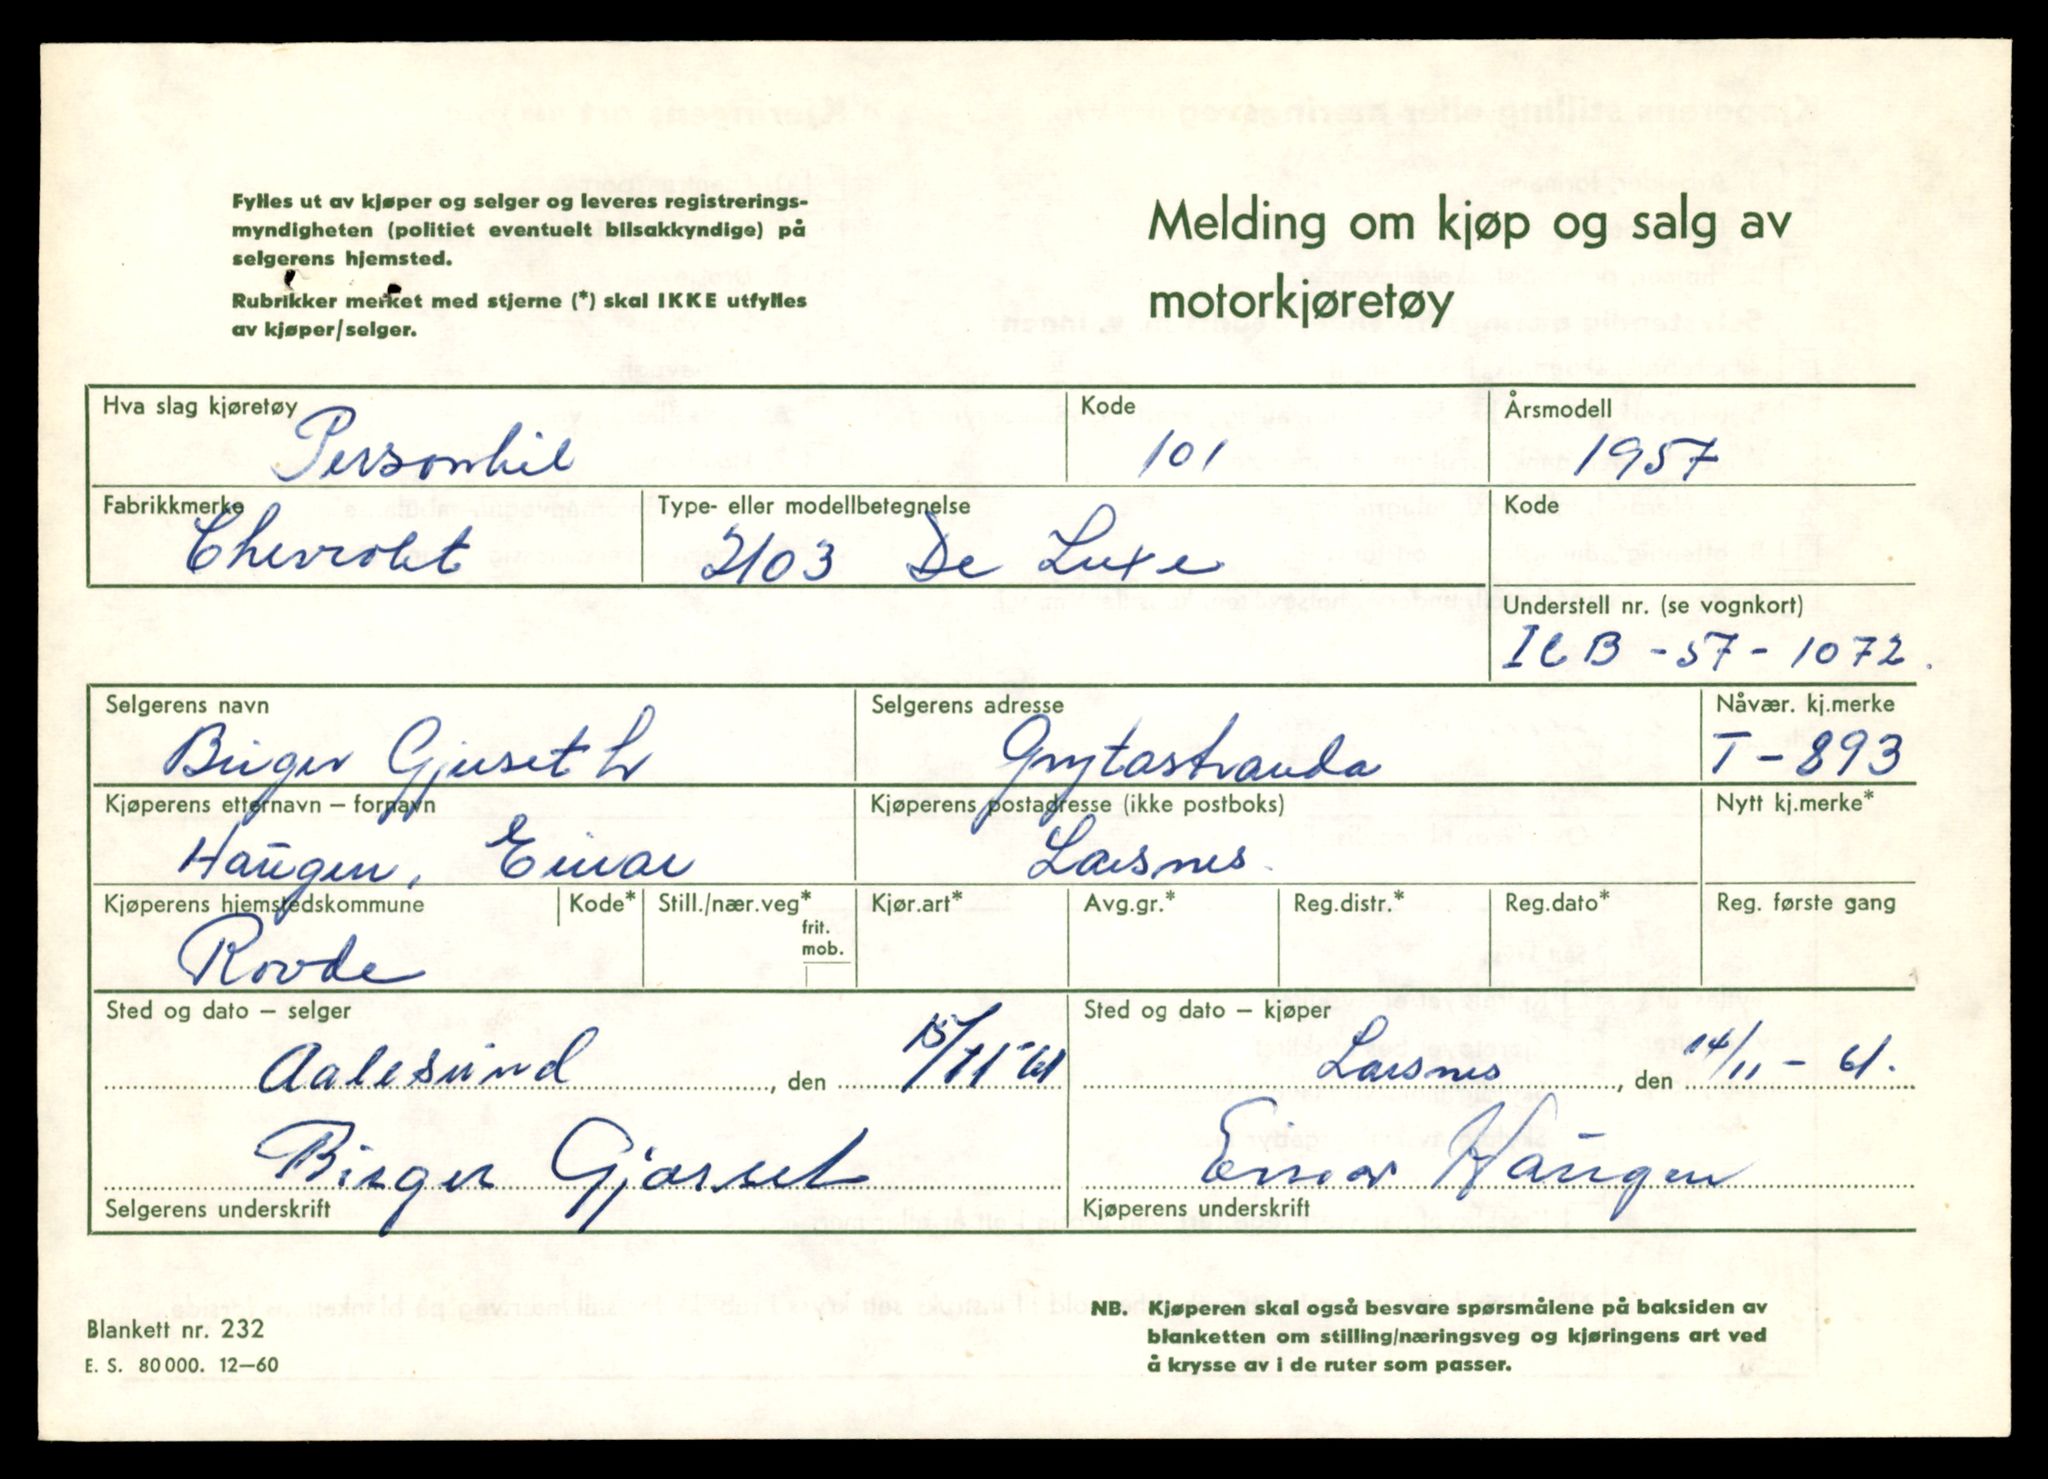 Fylles ut av kjøper og selger og leveres registrerings-
myndigheten (politiet eventuelt bilsakkyndige) på
selgerens hjemsted.
Rubrikker merket med stjerne (*) skal IKKE utfylles
av kjøper/selger.
Melding om kjøp og salg av
motorkjøretøy
Hva slag kjøretøy Kode Årsmodell
Personbil 101 1957
Fabrikkmerke Type- eller modellbetegnelse Kode
Chevrolet 2103 De Luxe
Understell nr. (se vognkort)
ICB - 57 - 1072.
Selgerens navn Selgerens adresse Nåvær. kj.merke
Birger Gjerseth Grytastranda T - 893
Kjøperens etternavn – fornavn Kjøperens postadresse (ikke postboks) Nytt kj.merke*
Haugen, Einar Larsnes.
Kjøperens hjemstedskommune Kode* Still./nær.veg* Kjør.art* Avg.gr.* Reg.distr.* Reg.dato* Reg. første gang
frit.
mob.
Rovde
Sted og dato – selger Sted og dato – kjøper
Aalesund, den 15/11-61 Larsnes, den 14/11 - 61.
Birger Gjerset Einar Haugen
Selgerens underskrift Kjøperens underskrift
Blankett nr. 232
E. S. 80 000. 12—60
NB. Kjøperen skal også besvare spørsmålene på baksiden av
blanketten om stilling/næringsveg og kjøringens art ved
å krysse av i de ruter som passer.